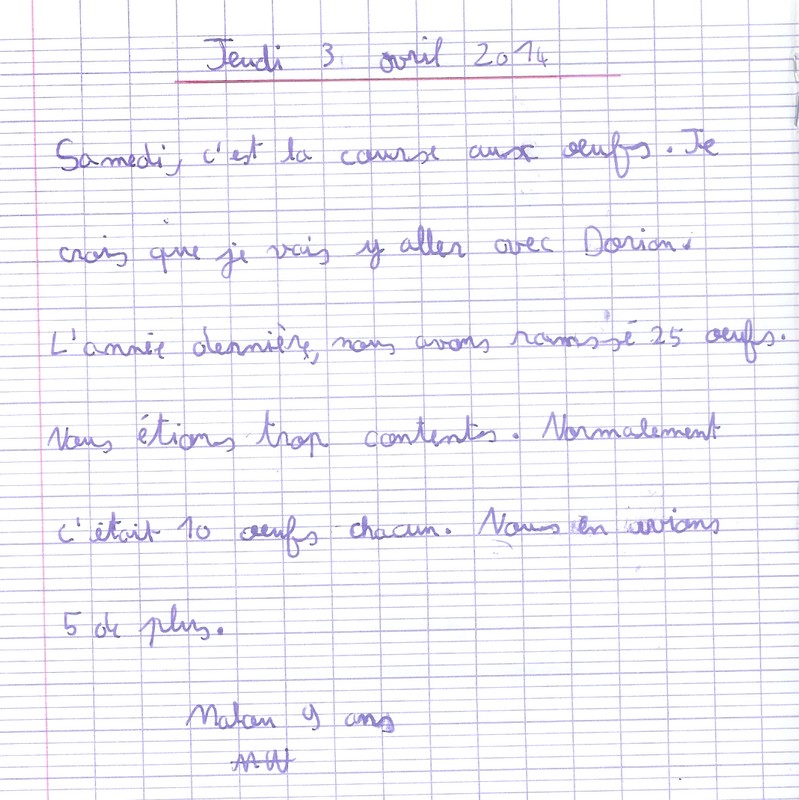 Jeudi 3 avril 2014
Samedi, c'est la course aux oeufs. Je
crois que je vais y aller avec Dorian.
L'année dernière, nous avons ramassé 25 oeufs.
Nous étions trop contents. Normalement
c'était 10 oeufs chacun. Nous en avions
5 de plus.
9 ans